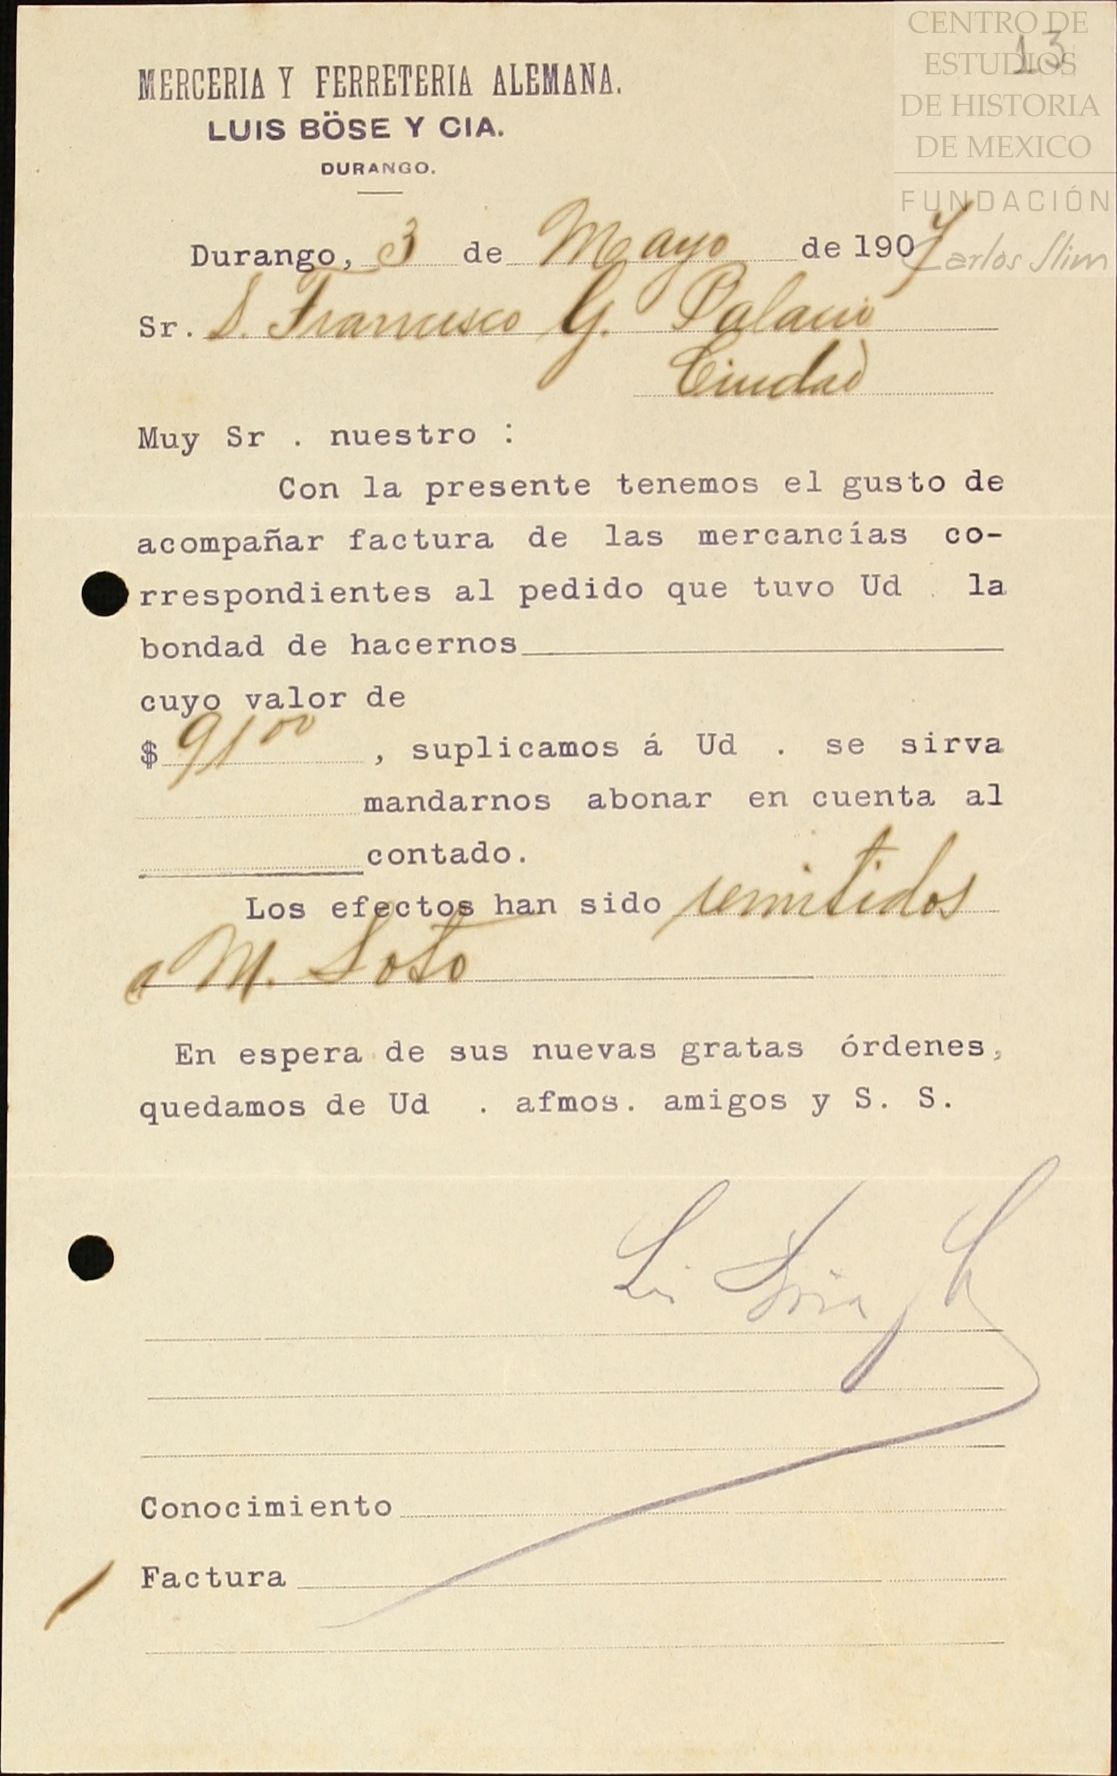 CENTRO DE
ESTUDIOS
DE HISTORIA
DE MEXICO
FUNDACIÓN
Carlos Slim
13
MERCERIA Y FERRETERIA ALEMANA.
LUIS BÖSE Y CIA.
DURANGO.
Durango, 3 de Mayo de 1907
Sr. D. Francisco G. Palacio
Ciudad
Muy Sr . nuestro :
Con la presente tenemos el gusto de
acompañar factura de las mercancías co-
rrespondientes al pedido que tuvo Ud . la
bondad de hacernos
cuyo valor de
$ 91 00 , suplicamos á Ud . se sirva
mandarnos abonar en cuenta al
contado.
Los efectos han sido remitidos
a M. Soto
En espera de sus nuevas gratas órdenes,
quedamos de Ud . afmos. amigos y S. S.
Conocimiento
Factura